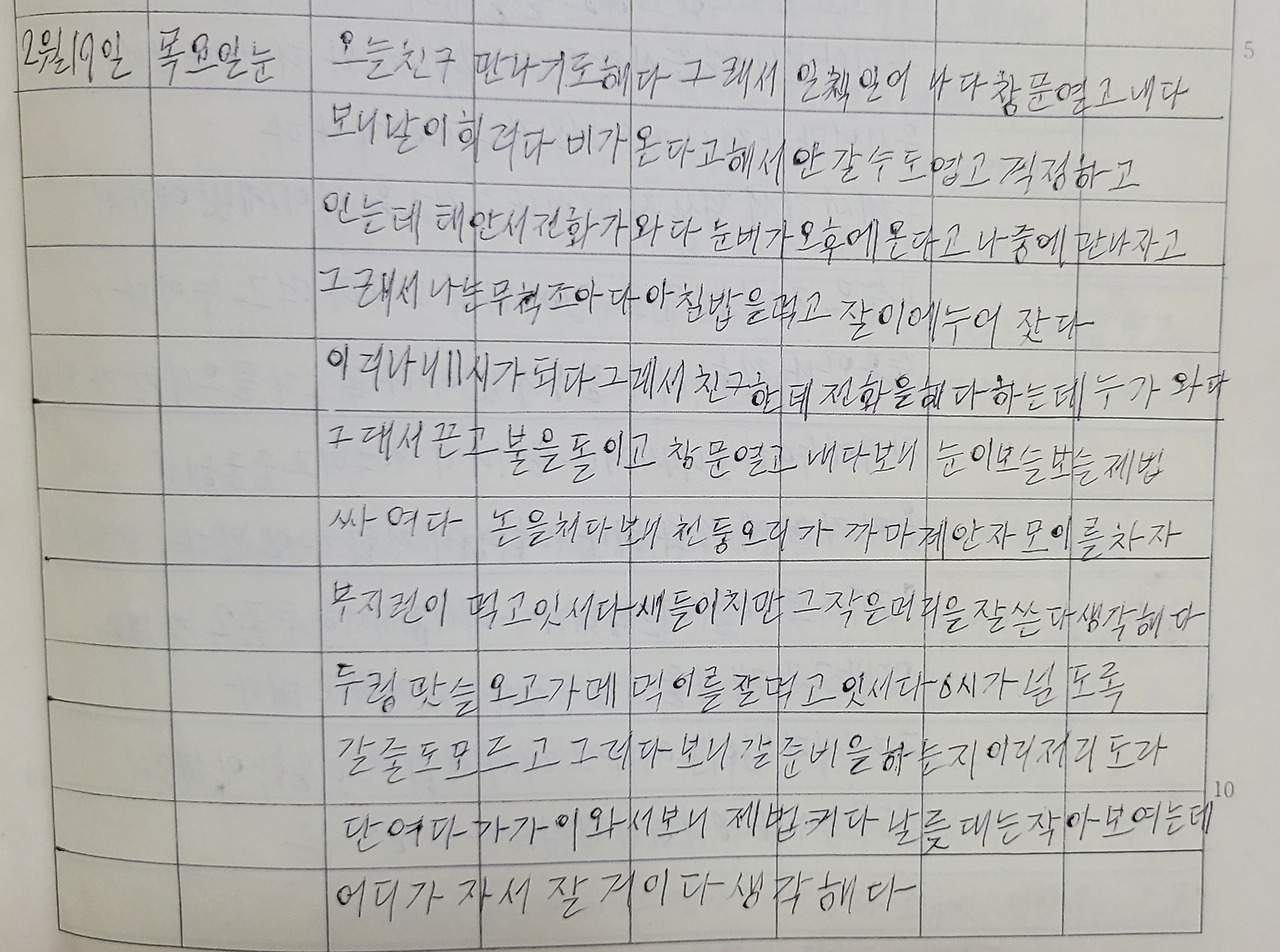 2월19일 목요일눈 오늘친구 만나기도해다 그래서 일찍일어 나다 창문열고내다
보니날이흐리다 비가 온다고해서 안갈수도엽고 걱정하고
인는데 태안서전화가와다 눈비가오후에온다고 나중에 만나자고
그래서 나는무척조아다 아침밥을먹고 잘이에누어 잣다
이러나니11시가 되다 그래서 친구한데 전화을해다 하는데 누가 와다
그래서끈고 불을돌이고 창문열고 내다보니 눈이보슬보슬제법
싸여다 논을처다보니 천퉁오리가 까마케안자모이를차자
부지런이 먹고잇서다 새들이지만 그작은머리을잘쓴다생각해다
두렁맛슬 오고가메 먹이를잘먹고잇서다 6시가 넘도록
갈줄도모드고 그러다보니갈준비을하는지이리저리도라
단여다 가가이와서보니 제법커다 날릇대는작아보여는데
어디가 자서 잘거이다생각해다
5
10